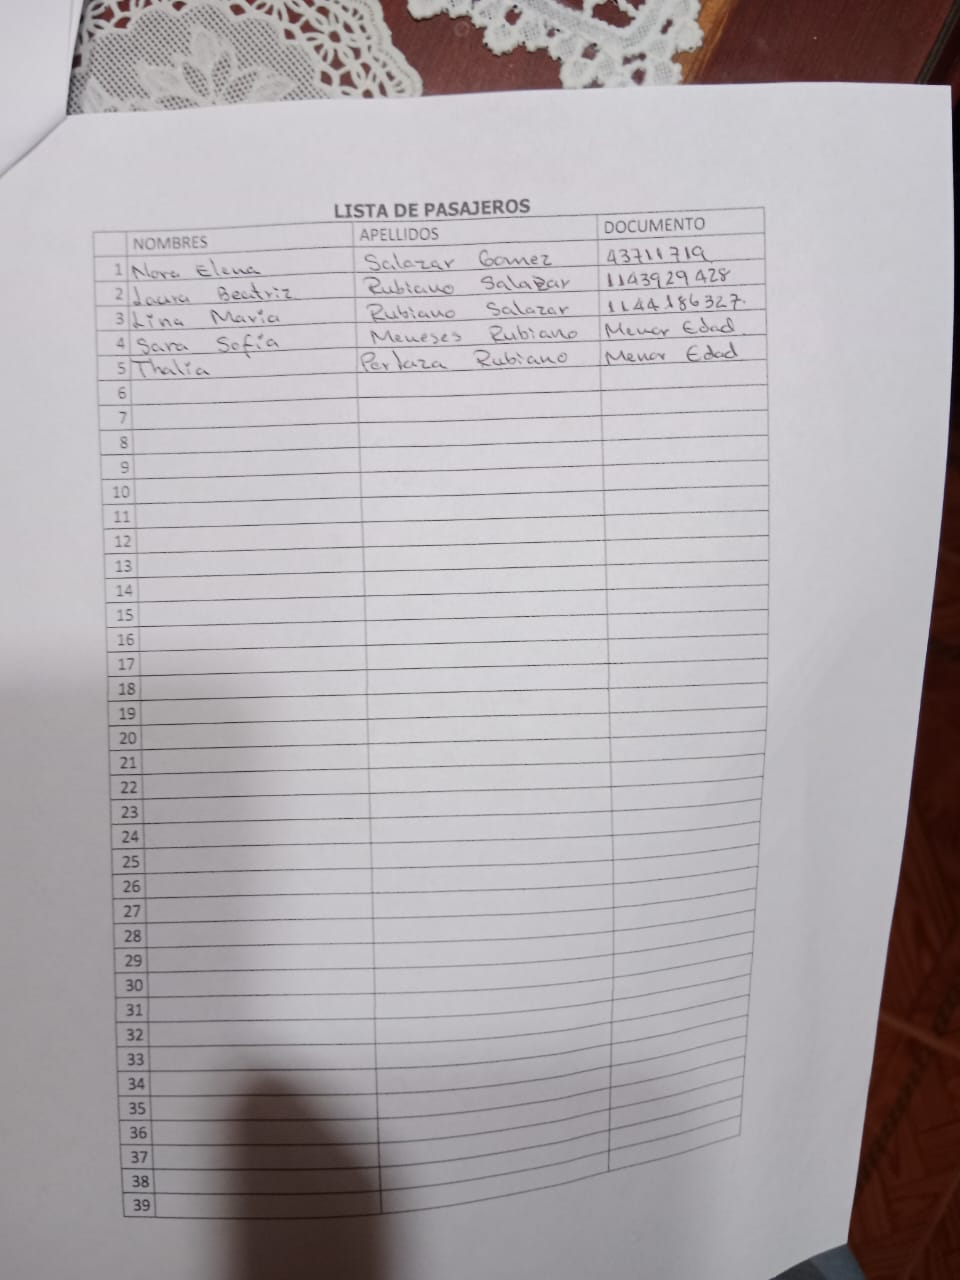 LISTA DE PASAJEROS
NOMBRES APELLIDOS DOCUMENTO
1 Nora Elena Salazar Gomez 43711719
2 Laura Beatriz Rubiano Salazar 1143929428
3 Lina Maria Rubiano Salazar 1144.186327.
4 Sara Sofía Meneses Rubiano Menor Edad
5 Thalia Perlaza Rubiano Menor Edad
6
7
8
9
10
11
12
13
14
15
16
17
18
19
20
21
22
23
24
25
26
27
28
29
30
31
32
33
34
35
36
37
38
39